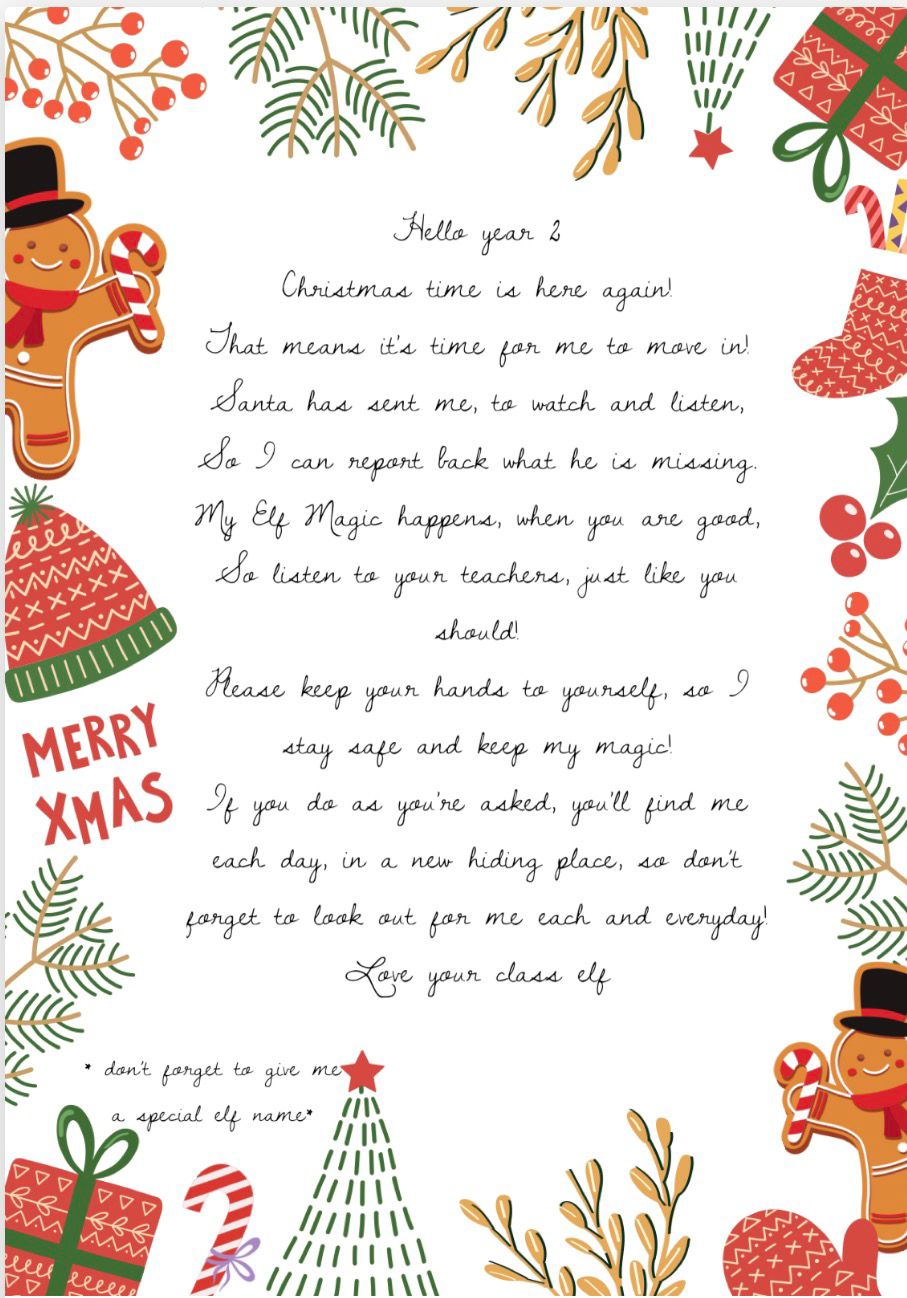 Hello year 2
Christmas time is here again!
That means it's time for me to move in!
Santa has sent me, to watch and listen,
So I can report back what he is missing.
My Elf Magic happens, when you are good,
So listen to your teachers, just like you
should!
Please keep your hands to yourself, so I
stay safe and keep my magic!
If you do as you're asked, you'll find me
each day, in a new hiding place, so don't
forget to look out for me each and everyday!
Love your class elf
MERRY
XMAS
* don't forget to give me
a special elf name*